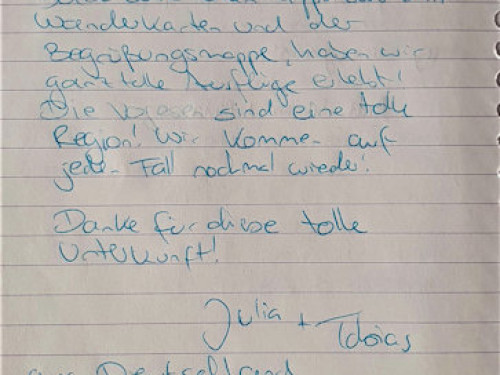 Wanderkarten und der
Begrüßungsmappe, haben wir
ganz tolle Ausflüge erlebt!
Die Vogesen sind eine tolle
Region! Wir kommen auf
jeden Fall nochmal wieder!
Danke für diese tolle
Unterkunft!
Julia + Tobias
aus Deutschland